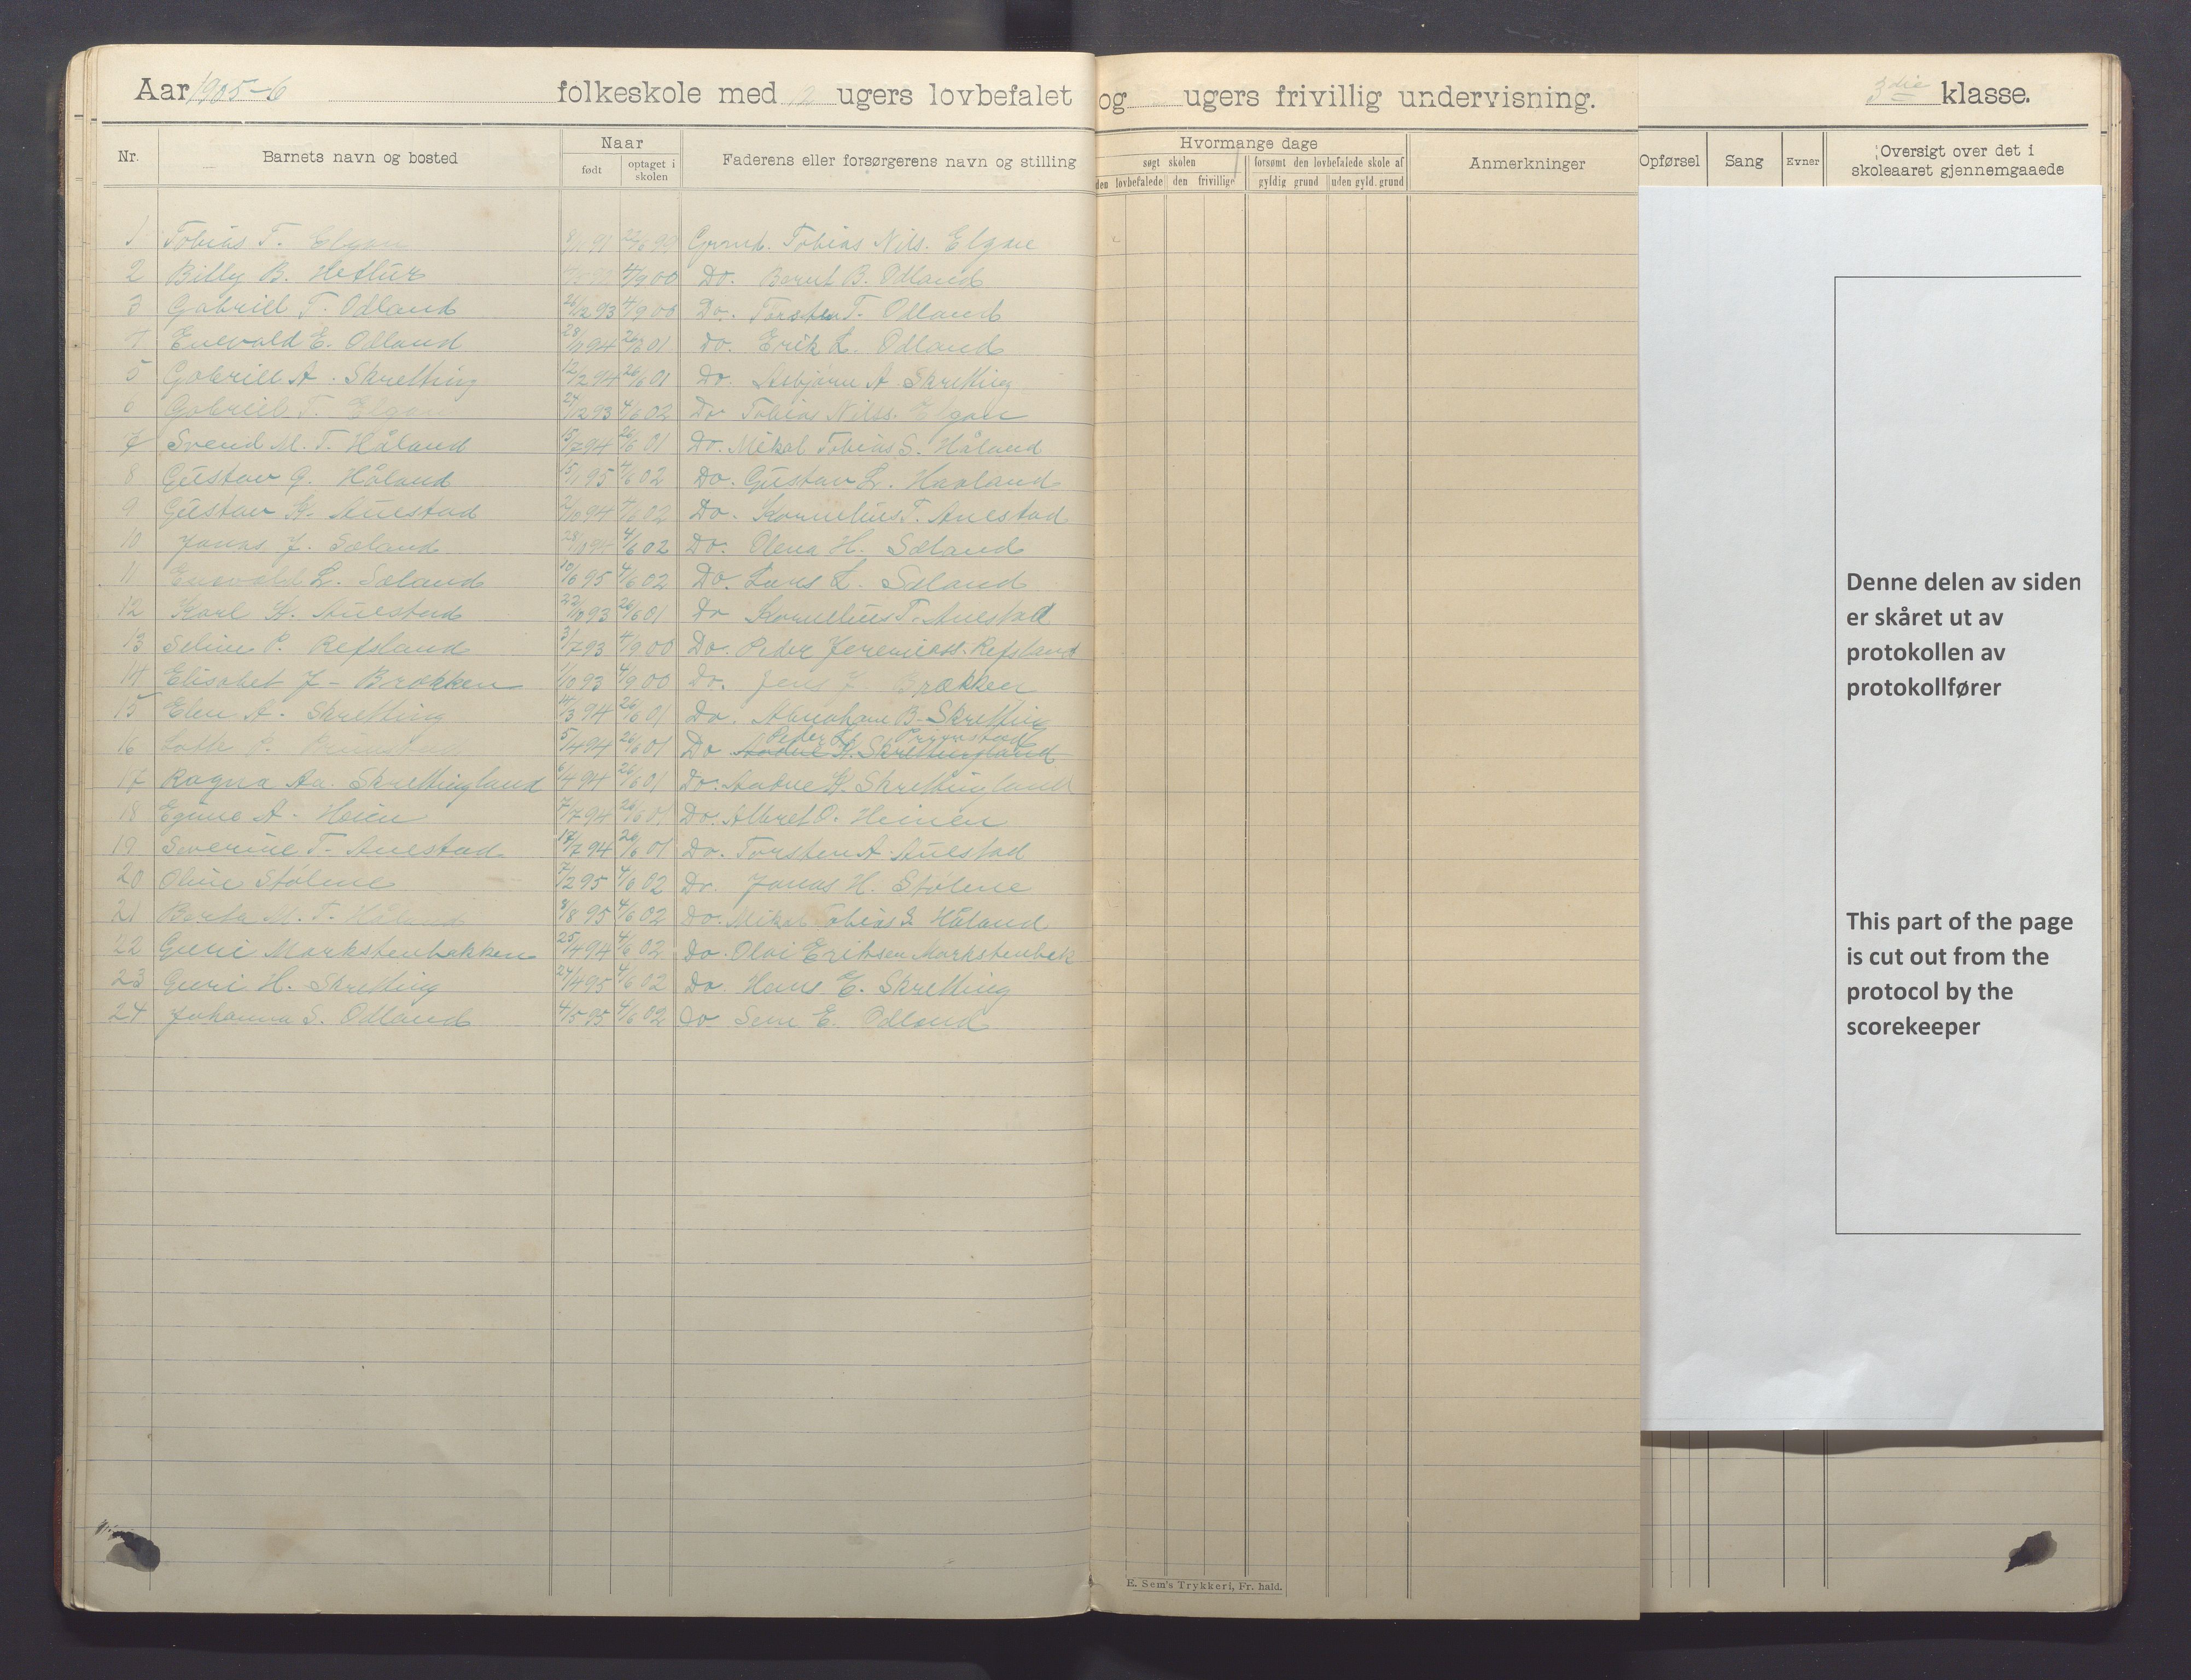 Aar 1905-6 folkeskole med 12 ugers lovbefalet og ugers frivillig undervisning. 3die klasse.
Nr. Barnets navn og bosted Naar født optaget i skolen Faderens eller forsørgerens navn og stilling
Hvormange dage
søgt skolen forsømt den lovbefalede skole af
den lovbefalede den frivillige gyldig grund uden gyld. grund
Anmerkninger
Opførsel Sang Evner Oversigt over det i skoleaaret gjennemgaaede
1 Tobias T. Elgan 8/1 91 99 Grmd. Tobias Nils. Elgan
2 Billy B. Hetlur 4/9 00 Do. Berut B. Odland
3 Gabriell T. Odland 26/12 93 4/9 00 Do. Torsten T. Odland
4 Enevald E. Odland 28/1 94 26/6 01 Do. Erik L. Odland
5 Gabriell A. Skretting 12/2 94 26/6 01 Do. Asbjørn A. Skretting
6 Gabriel T. Elgan 24/12 93 4/6 02 Do Tobias Nilss. Elgan
7 Svend M. T. Håland 15/7 94 26/6 01 Do. Mikal Tobias S. Håland
8 Gustav G. Håland 15/1 95 4/6 02 Do. Gustav L. Haaland
9 Gustav K. Auestad 2/10 94 4/6 02 Do. Kornelius T. Auestad
10 Jonas J. Sæland 94 4/6 02 Do. Olena H. Sæland
11 Enevald L. Sæland 10/6 95 4/6 02 Do. Lars L. Sæland
12 Karl K. Auestad 22/10 93 26/6 01 Do Kornelius T. Auestad
13 Seline P. Refsland 3/7 93 4/9 00 Do. Peder Jeremiass. Refsland
14 Elisabet J- Brækken 1/10 93 4/9 00 Do. Jens J Brækken
15 Elen A. Skretting 14/3 94 26/6 01 Do. Abraham B- Skretting
16 Lotte P. 5/4 94 26/6 01 Do Aadne K. Skrettingland
Peder
17 Ragna Aa. Skrettingland 6/4 94 26/6 01 Do. Aadne K. Skrettingland
18 A. Heien 7/7 94 26/6 01 Do. Albret O. Heinen
19 Severine T- Auestad 17/7 94 26/6 01 Do. Torsten A. Auestad
20 Oline Stølene 7/2 95 4/6 02 Do. Jonas H. Stølene
21 Berta M. T. Håland 8/8 95 4/6 02 Do. Mikal Tobias S. Håland
22 Guri Markstenbakken 25/4 94 4/6 02 Do. Olai Eriksen Markstenbak
23 Guri H. Skretting 24/4 95 4/6 02 Do. Hans E. Skretting
24 Johanna S. Odland 4/5 95 4/6 02 Do Sem E. Odland
E. Sem's Trykkeri, Fr. hald.
Denne delen av siden
er skåret ut av
protokollen av
protokollfører
This part of the page
is cut out from the
protocol by the
scorekeeper